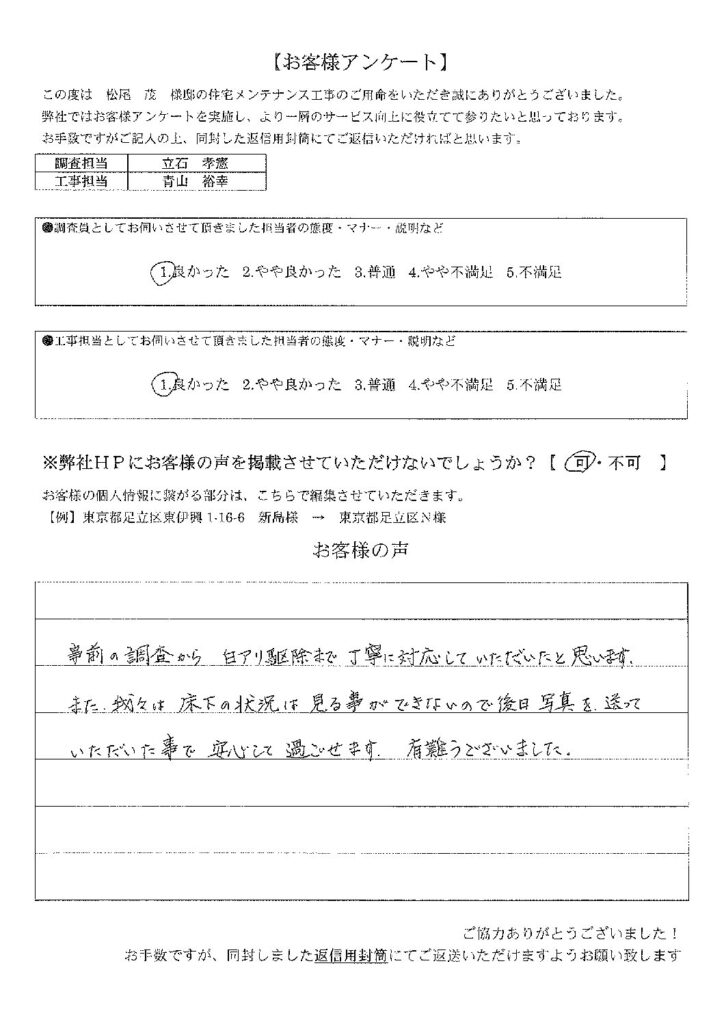 【お客様アンケート】
この度は　松尾　茂　様邸の住宅メンテナンス工事のご用命をいただき誠にありがとうございました。
弊社ではお客様アンケートを実施し、より一層のサービス向上に役立てて参りたいと思っております。
お手数ですがご記入の上、同封した返信用封筒にてご返信いただければと思います。
調査担当　立石　孝憲
工事担当　青山　裕幸
●調査員としてお伺いさせて頂きました担当者の態度・マナー・説明など
1.良かった　2.やや良かった　3.普通　4.やや不満足　5.不満足
●工事担当としてお伺いさせて頂きました担当者の態度・マナー・説明など
1.良かった　2.やや良かった　3.普通　4.やや不満足　5.不満足
※弊社ＨＰにお客様の声を掲載させていただけないでしょうか？【　可・不可　】
お客様の個人情報に繋がる部分は、こちらで編集させていただきます。
【例】東京都足立区東伊興1-16-6　新島様　→　東京都足立区Ｎ様
お客様の声
事前の調査から　白アリ駆除まで　丁寧に対応していただいたと思います。
また、我々は　床下の状況は　見る事ができないので後日　写真を　送って
いただいた事で　安心して　過ごせます。　有難うございました。
ご協力ありがとうございました！
お手数ですが、同封しました返信用封筒にてご返送いただけますようお願い致します